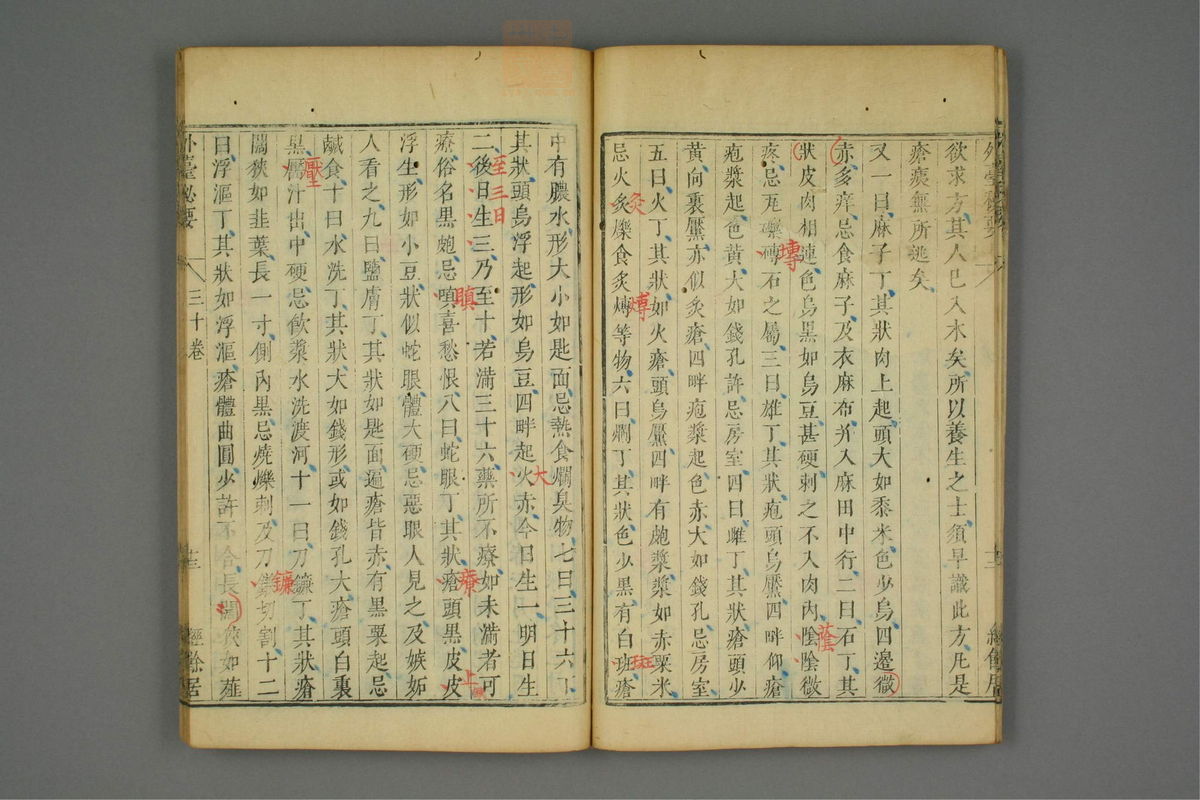 欲求方其人已入木矣所以養生之士須早識此方凡是
瘡痍無所逃矣
又一曰麻子丁其狀肉上起頭大如黍米色少烏四邊微
赤多痒忌食麻子及衣麻布并入麻田中行二曰石丁其
狀皮肉相連色烏黑如烏豆甚硬刺之不入肉內陰陰微
疼忌瓦礫磚石之屬三曰雄丁其狀疱頭烏黶四畔仰瘡
疱漿起色黃大如錢孔許忌房室四曰雌丁其狀瘡頭少
黃向裏黶亦似灸瘡四畔疱漿起色赤大如錢孔忌房室
五曰火丁其狀如火瘡頭烏黶四畔有疱漿漿如赤粟米
忌火炙爍食炙煿等物六曰爛丁其狀色少黑有白班瘡
磚
蔭
灸
煿
斑
中有膿水形大小如匙面忌熱食爛臭物七曰三十六丁
其狀頭烏浮起形如烏豆四畔起火赤今日生一明日生
二後日生三乃至十若滿三十六藥所不療如未滿者可
療俗名黑疱忌嗔喜愁恨八曰蛇眼丁其狀瘡頭黑皮皮
浮生形如小豆狀似蛇眼體大硬忌惡眼人見之及嫉妬
人看之九曰鹽膚丁其狀如匙面遍瘡皆赤有黑粟起忌
鹹食十曰水洗丁其狀大如錢形或如錢孔大瘡頭白裏
黑黶汁出中硬忌飲漿水洗渡河十一曰刀鐮丁其狀瘡
闊狹如韭葉長一寸側內黑忌燒爍刺及刀鐮切割十二
曰浮漚丁其狀如浮漚瘡體曲圓少許不合長闊狹如薤
大
至三日
瞋
療
上
壓
鐮
外臺秘要
三十卷
十三
經餘居